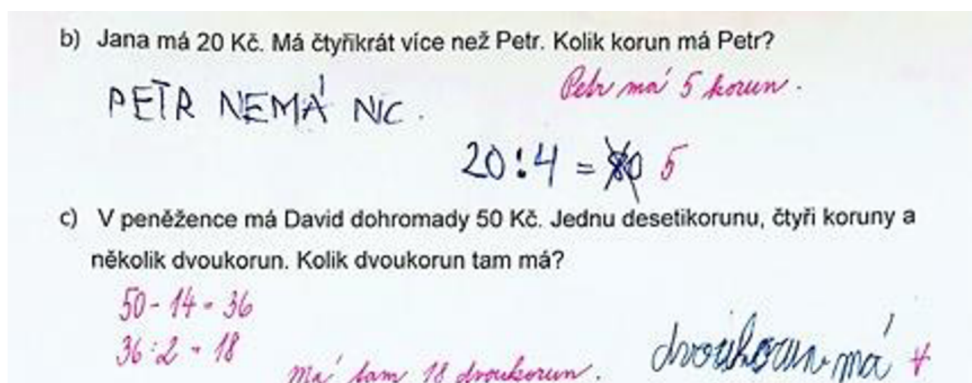 b) Jana má 20 Kč. Má čtyřikrát více než Petr. Kolik korun má Petr?
Petr má 5 korun.
PETR NEMÁ NIC.
20:4 = 80 5
c) V peněžence má David dohromady 50 Kč. Jednu desetikorunu, čtyři koruny a
několik dvoukorun. Kolik dvoukorun tam má?
50 - 14 = 36
36:2 = 18
dvoukorun má 4
Má tam 18 dvoukorun.